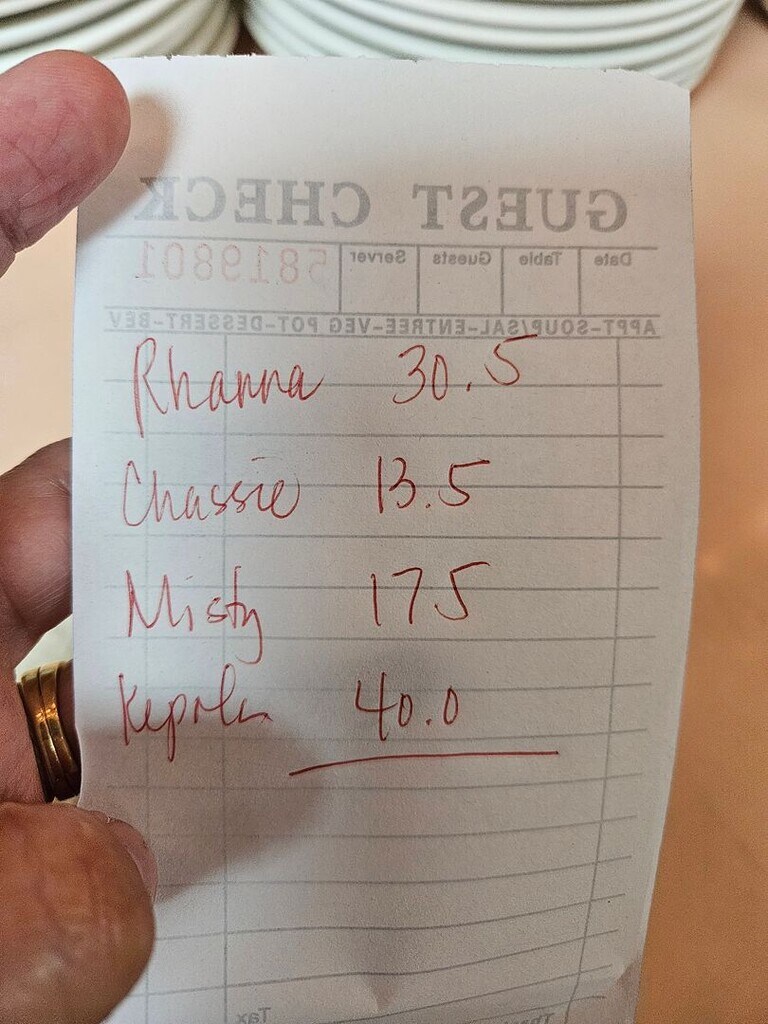 GUEST CHECK
Date Table Guests Server 5819801
APPT-SOUP/SAL-ENTREE-VEG POT-DESSERT-BEV
Rhanna 30.5
Chassie 13.5
Misty 175
40.0
Tax